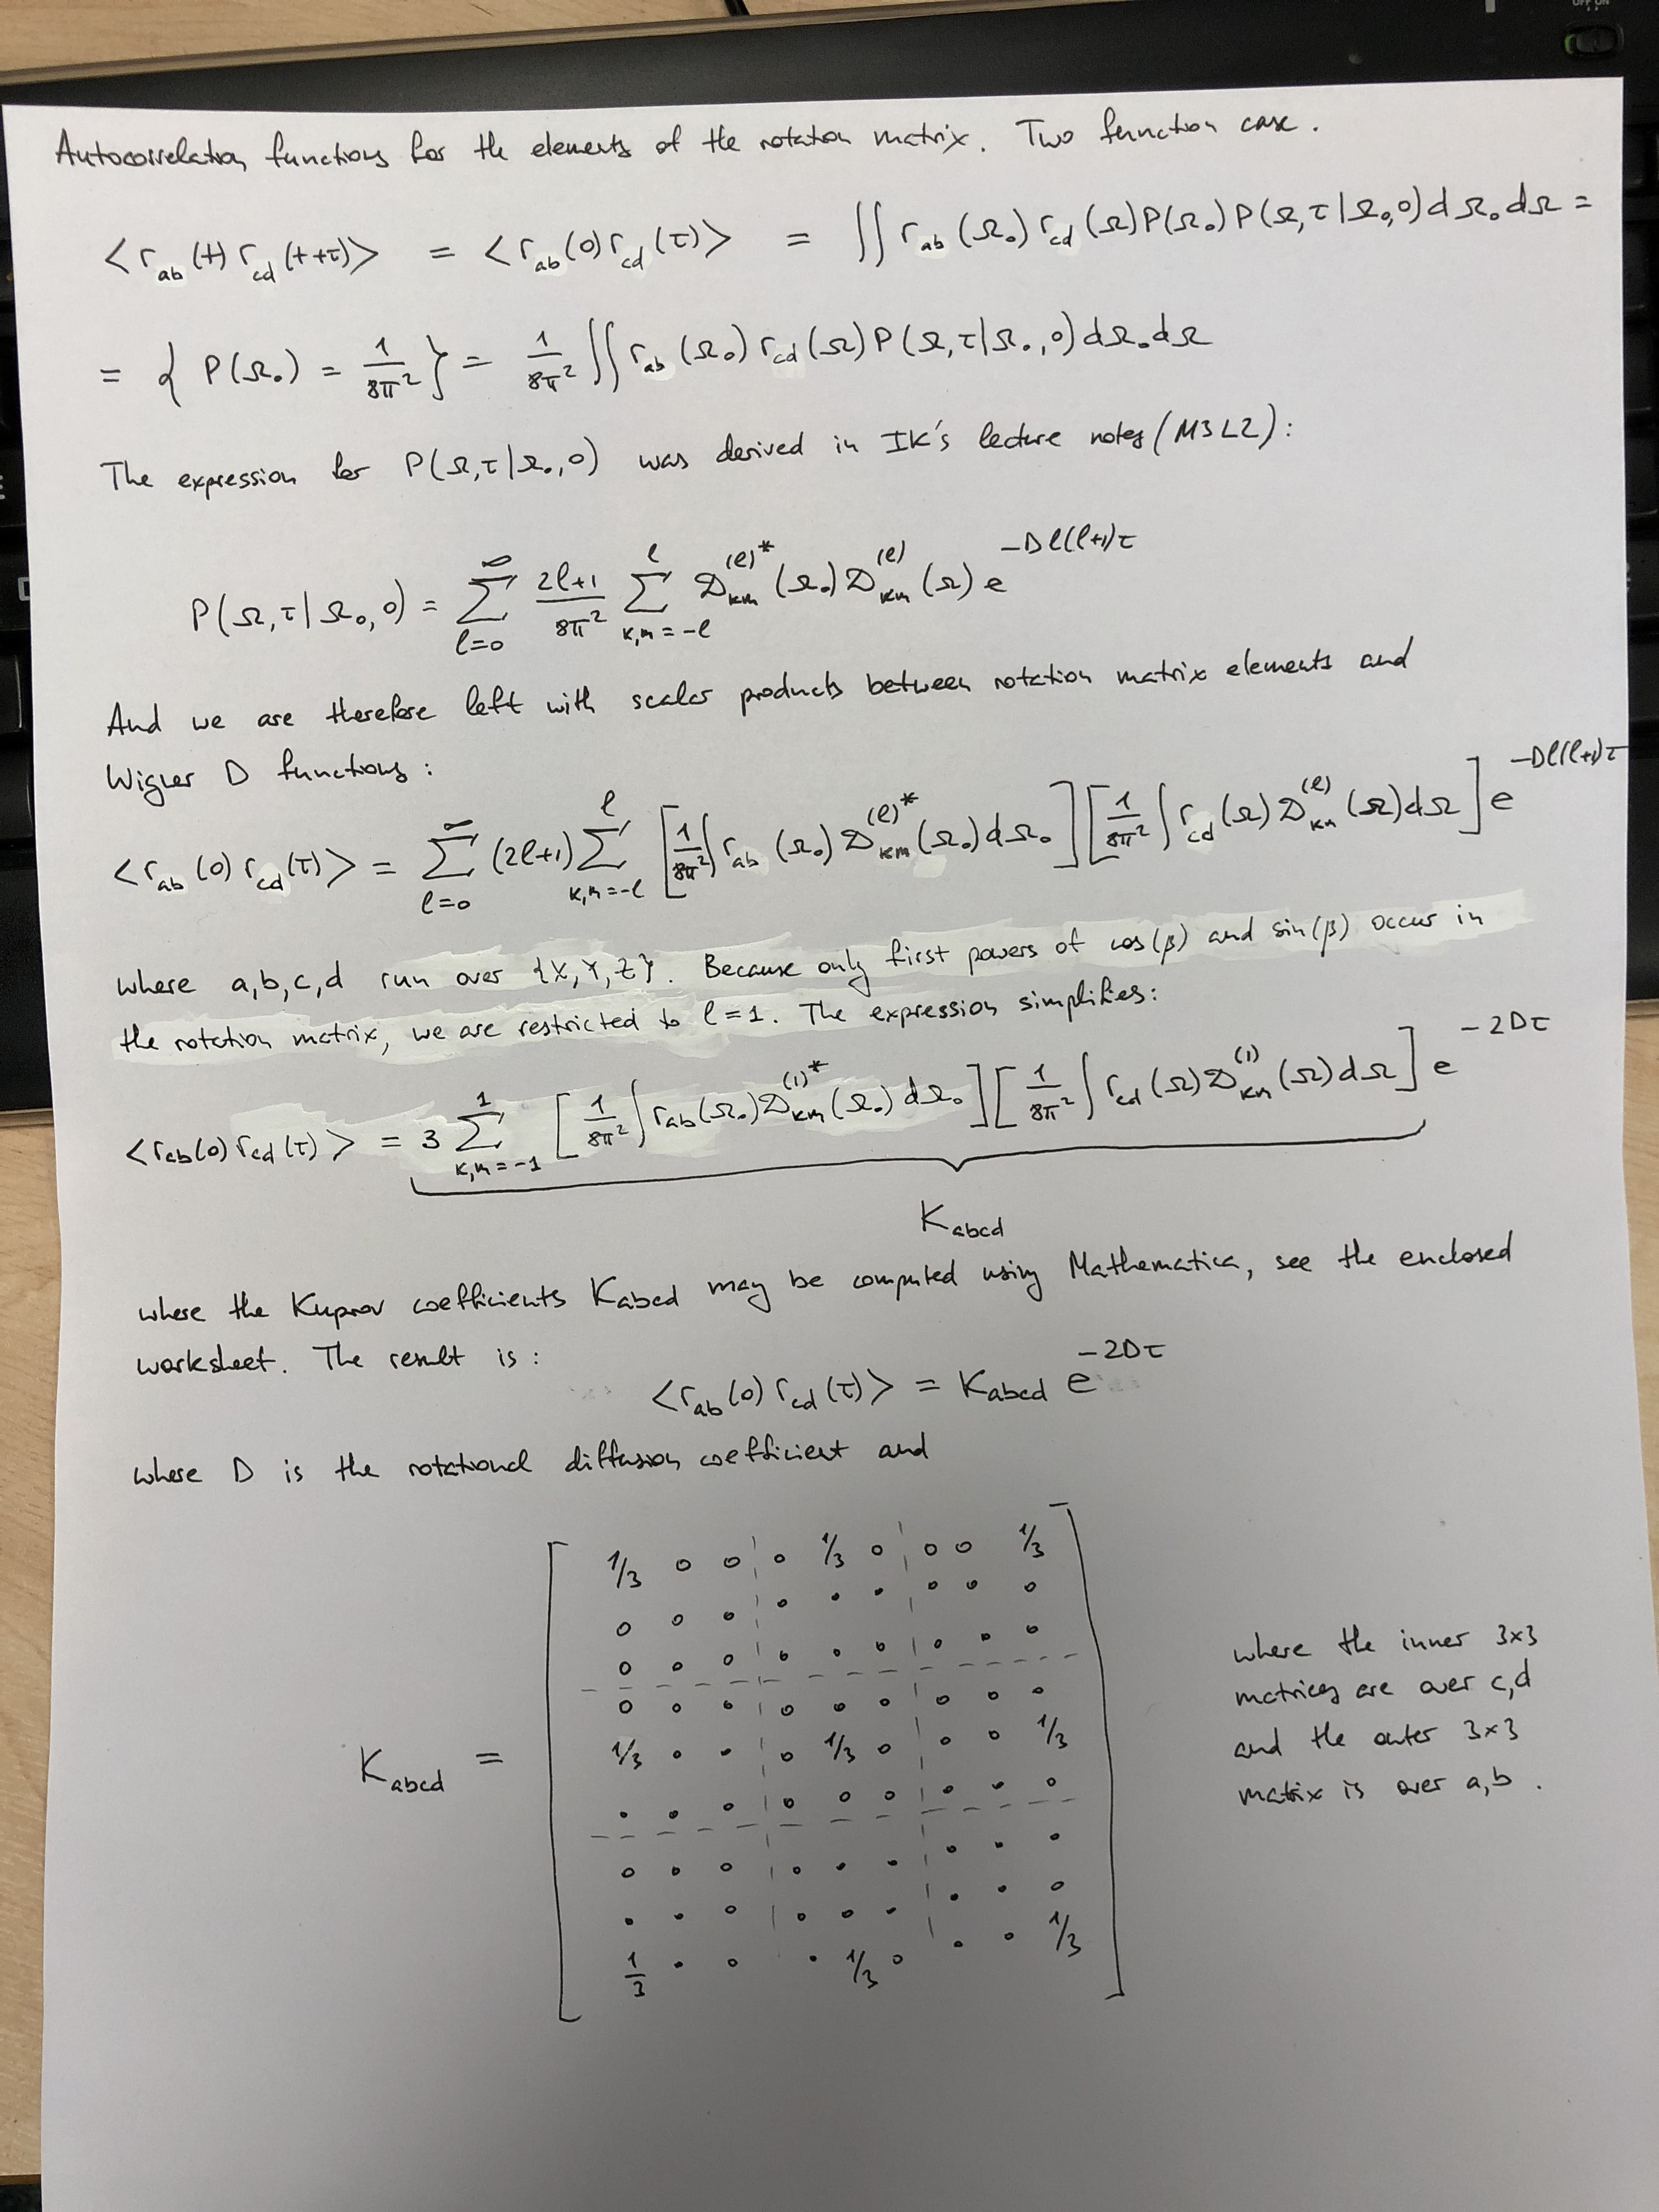 OFF ON
Autocorrelation functions for the elements of the rotation matrix. Two function case.
⟨r_ab(t) r_cd(t+τ)⟩ = ⟨r_ab(0) r_cd(τ)⟩ = ∬ r_ab(Ω₀) r_cd(Ω) P(Ω₀) P(Ω,τ|Ω₀,0) dΩ₀ dΩ =
= { P(Ω₀) = 1/8π² } = 1/8π² ∬ r_ab(Ω₀) r_cd(Ω) P(Ω,τ|Ω₀,0) dΩ₀ dΩ
The expression for P(Ω,τ|Ω₀,0) was derived in IK's lecture notes (M3L2):
P(Ω,τ|Ω₀,0) = ∑_{l=0}^{∞} (2l+1)/8π² ∑_{k,m=-l}^{l} 𝔇_km^(l)*(Ω₀) 𝔇_km^(l)(Ω) e^{-Dl(l+1)τ}
And we are therefore left with scalar products between rotation matrix elements and
Wigner D functions:
⟨r_ab(0) r_cd(τ)⟩ = ∑_{l=0}^{∞} (2l+1) ∑_{k,m=-l}^{l} [1/8π² ∫ r_ab(Ω₀) 𝔇_km^(l)*(Ω₀) dΩ₀] [1/8π² ∫ r_cd(Ω) 𝔇_km^(l)(Ω) dΩ] e^{-Dl(l+1)τ}
where a,b,c,d run over {X,Y,Z}. Because only first powers of cos(β) and sin(β) occur in
the rotation matrix, we are restricted to l=1. The expression simplifies:
⟨r_ab(0) r_cd(τ)⟩ = 3 ∑_{k,m=-1}^{1} [1/8π² ∫ r_ab(Ω₀) 𝔇_km^(1)*(Ω₀) dΩ₀] [1/8π² ∫ r_cd(Ω) 𝔇_km^(1)(Ω) dΩ] e^{-2Dτ}
K_abcd
where the Kuprov coefficients K_abcd may be computed using Mathematica, see the enclosed
worksheet. The result is:
⟨r_ab(0) r_cd(τ)⟩ = K_abcd e^{-2Dτ}
where D is the rotational diffusion coefficient and
1/3 0 0 0 1/3 0 0 0 1/3
0 0 0 0 0 0 0 0 0
0 0 0 0 0 0 0 0 0
0 0 0 0 0 0 0 0 0
K_abcd = 1/3 0 0 0 1/3 0 0 0 1/3
0 0 0 0 0 0 0 0 0
0 0 0 0 0 0 0 0 0
0 0 0 0 0 0 0 0 0
1/3 0 0 0 1/3 0 0 0 1/3
where the inner 3x3
matrices are over c,d
and the outer 3x3
matrix is over a,b.